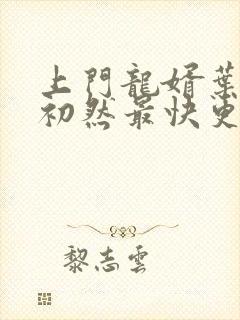 上門龍婿葉
初然最快更
黎志雲